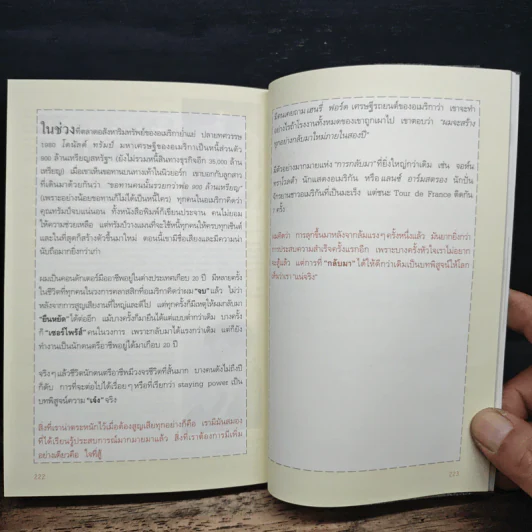 ในช่วงที่ตลาดอสังหาริมทรัพย์ของอเมริกาย่ำแย่ ปลายทศวรรษ
1980 โดนัลด์ ทรัมป์ มหาเศรษฐีของอเมริกาเป็นหนี้ส่วนตัว
900 ล้านเหรียญสหรัฐฯ (ยังไม่รวมหนี้สินทางธุรกิจอีก 35,000 ล้าน
เหรียญ) เมื่อเขาเห็นขอทานบนทางเท้าในนิวยอร์ก เขาบอกกับลูกสาว
ที่เดินมาด้วยกันว่า "ขอทานคนนั้นรวยกว่าพ่อ 900 ล้านเหรียญ"
(เพราะอย่างน้อยขอทานก็ไม่ได้เป็นหนี้ใคร) ทุกคนในอเมริกาคิดว่า
คุณทรัมป์จบแน่นอน ทั้งหนังสือพิมพ์ก็เขียนประจาน คนไม่ยอม
ให้ความช่วยเหลือ แต่ทรัมป์วางแผนที่จะใช้หนี้ทุกคนให้ครบทุกเซ็นต์
และในที่สุดก็สร้างตัวขึ้นมาใหม่ ตอนนี้เขามีชื่อเสียงและมีความน่า
นับถือมากยิ่งกว่าเก่า
ผมเป็นคอนดักเตอร์มืออาชีพอยู่ในต่างประเทศเกือบ 20 ปี มีหลายครั้ง
ในชีวิตที่ทุกคนในวงการคลาสสิกที่อเมริกาคิดว่าผม "จบ" แล้ว ไม่ว่า
หลังจากการสูญเสียงานที่ใหญ่และดีไป แต่ทุกครั้งก็มีเหตุให้ผมกลับมา
"ยืนหยัด" ได้ต่ออีก แม้บางครั้งก็มายืนได้แต่แบบต่ำกว่าเดิม บางครั้ง
ก็ "เซอร์ไพร้ส์" คนในวงการ เพราะกลับมาได้แรงกว่าเดิม แต่ก็ยัง
ทำงานเป็นนักดนตรีอาชีพอยู่ได้มาเกือบ 20 ปี
จริงๆ แล้วชีวิตนักดนตรีอาชีพมีวงจรชีวิตที่สั้นมาก บางคนดังไม่ถึงปี
ก็ดับ การที่จะต่อไปได้เรื่อยๆ หรือที่เรียกว่า staying power เป็น
บทพิสูจน์ความ "เจ๋ง" จริง
สิ่งที่เราน่าตระหนักไว้เมื่อต้องสูญเสียทุกอย่างก็คือ เรามีมันสมอง
ที่ได้เรียนรู้ประสบการณ์มากมายมาแล้ว สิ่งที่เราต้องการมีเพิ่ม
อย่างเดียวคือ ใจที่สู้
222
มีคนเคยถาม เฮนรี่ ฟอร์ด เศรษฐีรถยนต์ของอเมริกาว่า เขาจะทำ
อย่างไรถ้าโรงงานทั้งหมดของเขาถูกเผาไป เขาตอบว่า "ผมจะสร้าง
ทุกอย่างกลับมาใหม่ภายในสองปี"
มีตัวอย่างมากมายแห่ง "การกลับมา" ที่ยิ่งใหญ่กว่าเดิม เช่น จอห์น
ทราโวลต้า นักแสดงอเมริกัน หรือ แลนซ์ อาร์มสตรอง นักปั่น
จักรยานชาวอเมริกันที่เป็นมะเร็ง แต่ชนะ Tour de France ติดกัน
7 ครั้ง
ผมคิดว่า การลุกขึ้นมาหลังจากล้มแรงๆ ครั้งหนึ่งแล้ว มันยากยิ่งกว่า
การประสบความสำเร็จครั้งแรกอีก เพราะบางครั้งหัวใจเราไม่อยาก
จะสู้แล้ว แต่การที่ "กลับมา" ได้ให้ดีกว่าเดิมเป็นบทพิสูจน์ให้โลก
เห็นว่าเรา "แน่จริง"
223